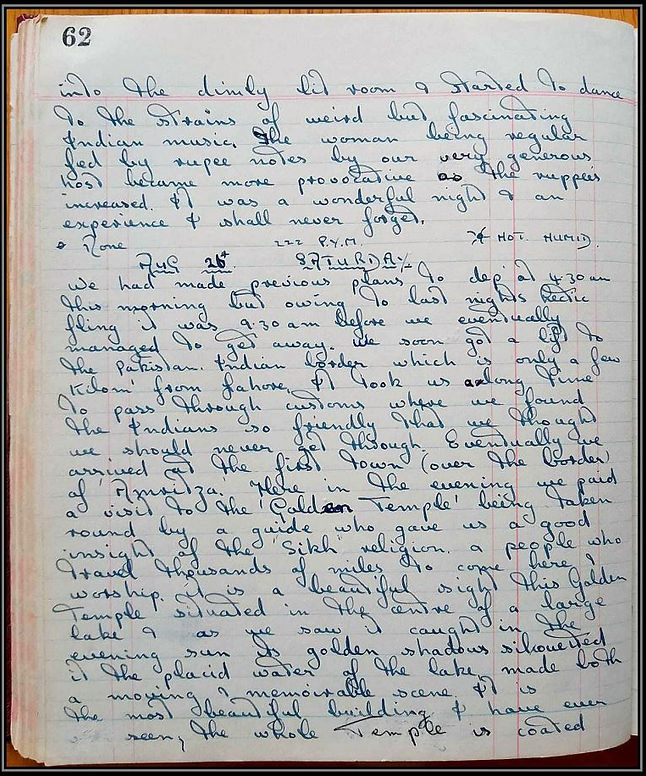 62
into the dimly lit room & started to dance
to the strains of weird but fascinating
Indian music. The woman being regular
fed by rupee notes by our very generous
host became more provocative as the ruppes
increased. It was a wonderful night & an
experience I shall never forget.
None 222 P.Y.M. HOT. HUMID.
AUG 26t SATURDAY
we had made previous plans to dep at 4.30 am
this morning but owing to last nights hectic
fling it was 9.30 am before we eventually
managed to get away. We soon got a lift to
the Pakistan. Indian border which is only a few
Kilom' from Lahore. It took us along time
to pass through customs where we found
the Indians so friendly that we thought
we should never get through. Eventually we
arrived at the first town (over the border)
of 'Amritza'. Here in the evening we paid
a visit to the 'Golden Temple' being taken
round by a guide who gave us a good
insight of the 'Sikh' religion. a people who
travel thousands of miles to come here &
worship. it is a beautiful sight this Golden
Temple situated in the centre of a large
lake & as we saw it caught in the
evening sun its golden shadows silhouetted
it the placid water of the lake, made both
a moving & memorable scene. It is
the most beautiful building I have ever
seen, the whole Temple is coated